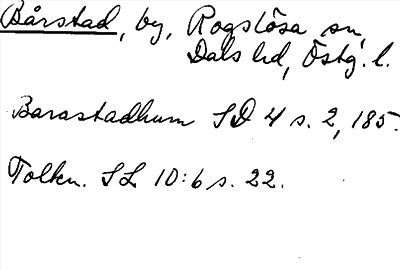 Bårstad, by, Rogslösa sn,
Dals hd, Östg. l.
Barastadhum SD 4 s. 2, 185.
Tolkn. SL 10:6 s. 22.